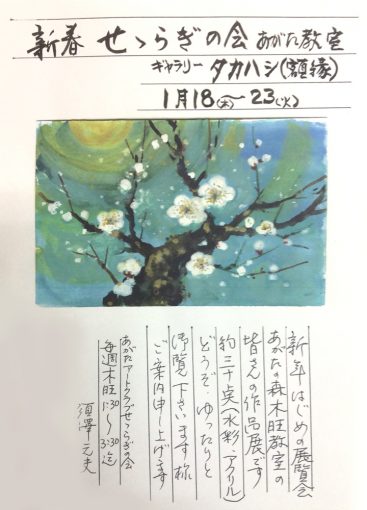 新春 せゝらぎの会 あがた教室
ギャラリー タカハシ(額縁)
1月18(木)〜23(火)
新年はじめの展覧会
あがたの森木旺教室の
皆さんの作品展です
約三十点(水彩・アクリル)
どうぞ、ゆったりと
御覧下さいます様
ご案内申し上げます
あがたアートクラブせゝらぎの会
毎週木旺 1:30〜3:30迄
須澤元夫